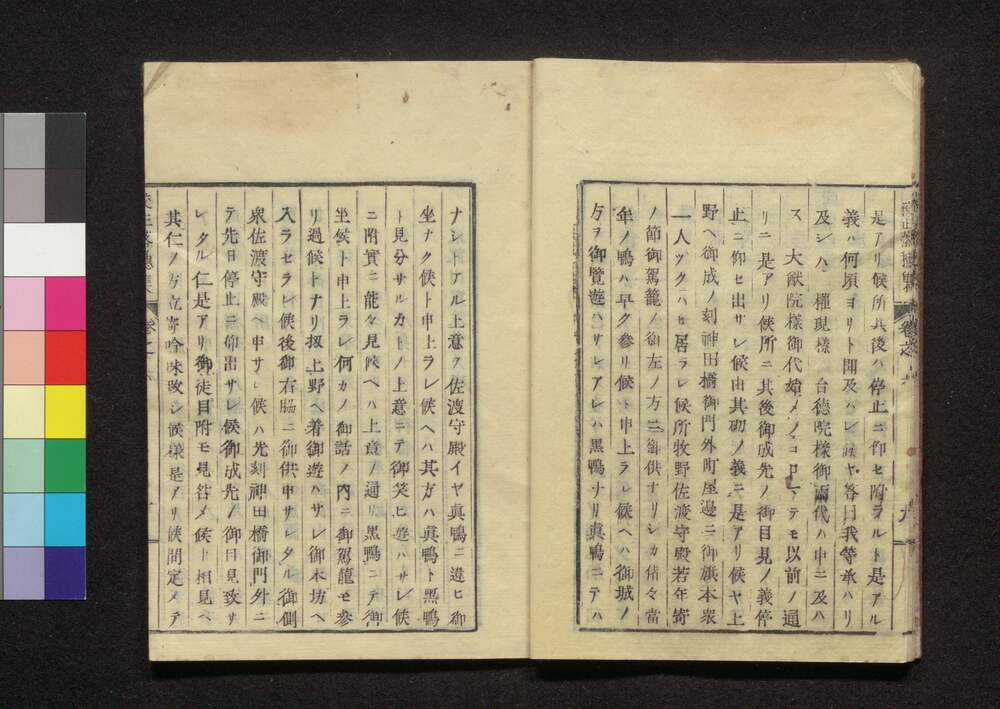 是アリ候所其後ハ停止ニ仰セ附ラルト是アル
義ハ何頃ヨリト開及ハレ候ヤ答曰我等承ハリ
及シハ 權現様 台德院様御兩代ハ申ニ及ハ
ス 大猷院様御代始メノコロマテモ以前ノ通
リニ是アリ候所ニ其後御成先ノ御目見ノ義停
止ニ仰セ出サレ候由其砌ノ義ニ是アリ候ヤ上
野ヘ御成ノ刻神田橋御門外町屋邊ニ御旗本衆
一人ツクハヒ居ラレ候所牧野佐渡守殿若年寄
ノ節御駕籠ノ御左ノ方ニ御供ナリシカ偖々當
年ノ鴨ハ早ク參リ候ト申上ラレ候ヘハ御城ノ
方ヲ御覽遊ハサレアレハ黒鴨ナリ眞鴨ニテハ
ナシトアル上意ヲ佐渡守殿イヤ眞鴨ニ違ヒ御
坐ナク候ト申上ラレ候ヘハ其方ハ眞鴨ト黒鴨
ト見分サルカトノ上意ニテ御笑ヒ遊ハサレ候
ニ附實ニ能々見候ヘハ上意ノ通リ黒鴨ニテ御
坐候ト申上ラレ何カノ御話ノ内ニ御駕籠モ參
リ過候トナリ扨上野ヘ着御遊ハサレ御本坊ヘ
入ラセラレ候後御右脇ニ御供申サレタル御側
衆佐渡守殿ヘ申サレ候ハ先刻神田橋御門外ニ
テ先日停止ニ仰出サレ候御成先ノ御目見致サ
レタル仁是アリ御徒目附モ見咎メ候ト相見ヘ
其仁ノ方立寄吟味致シ候様是アリ候間定メテ